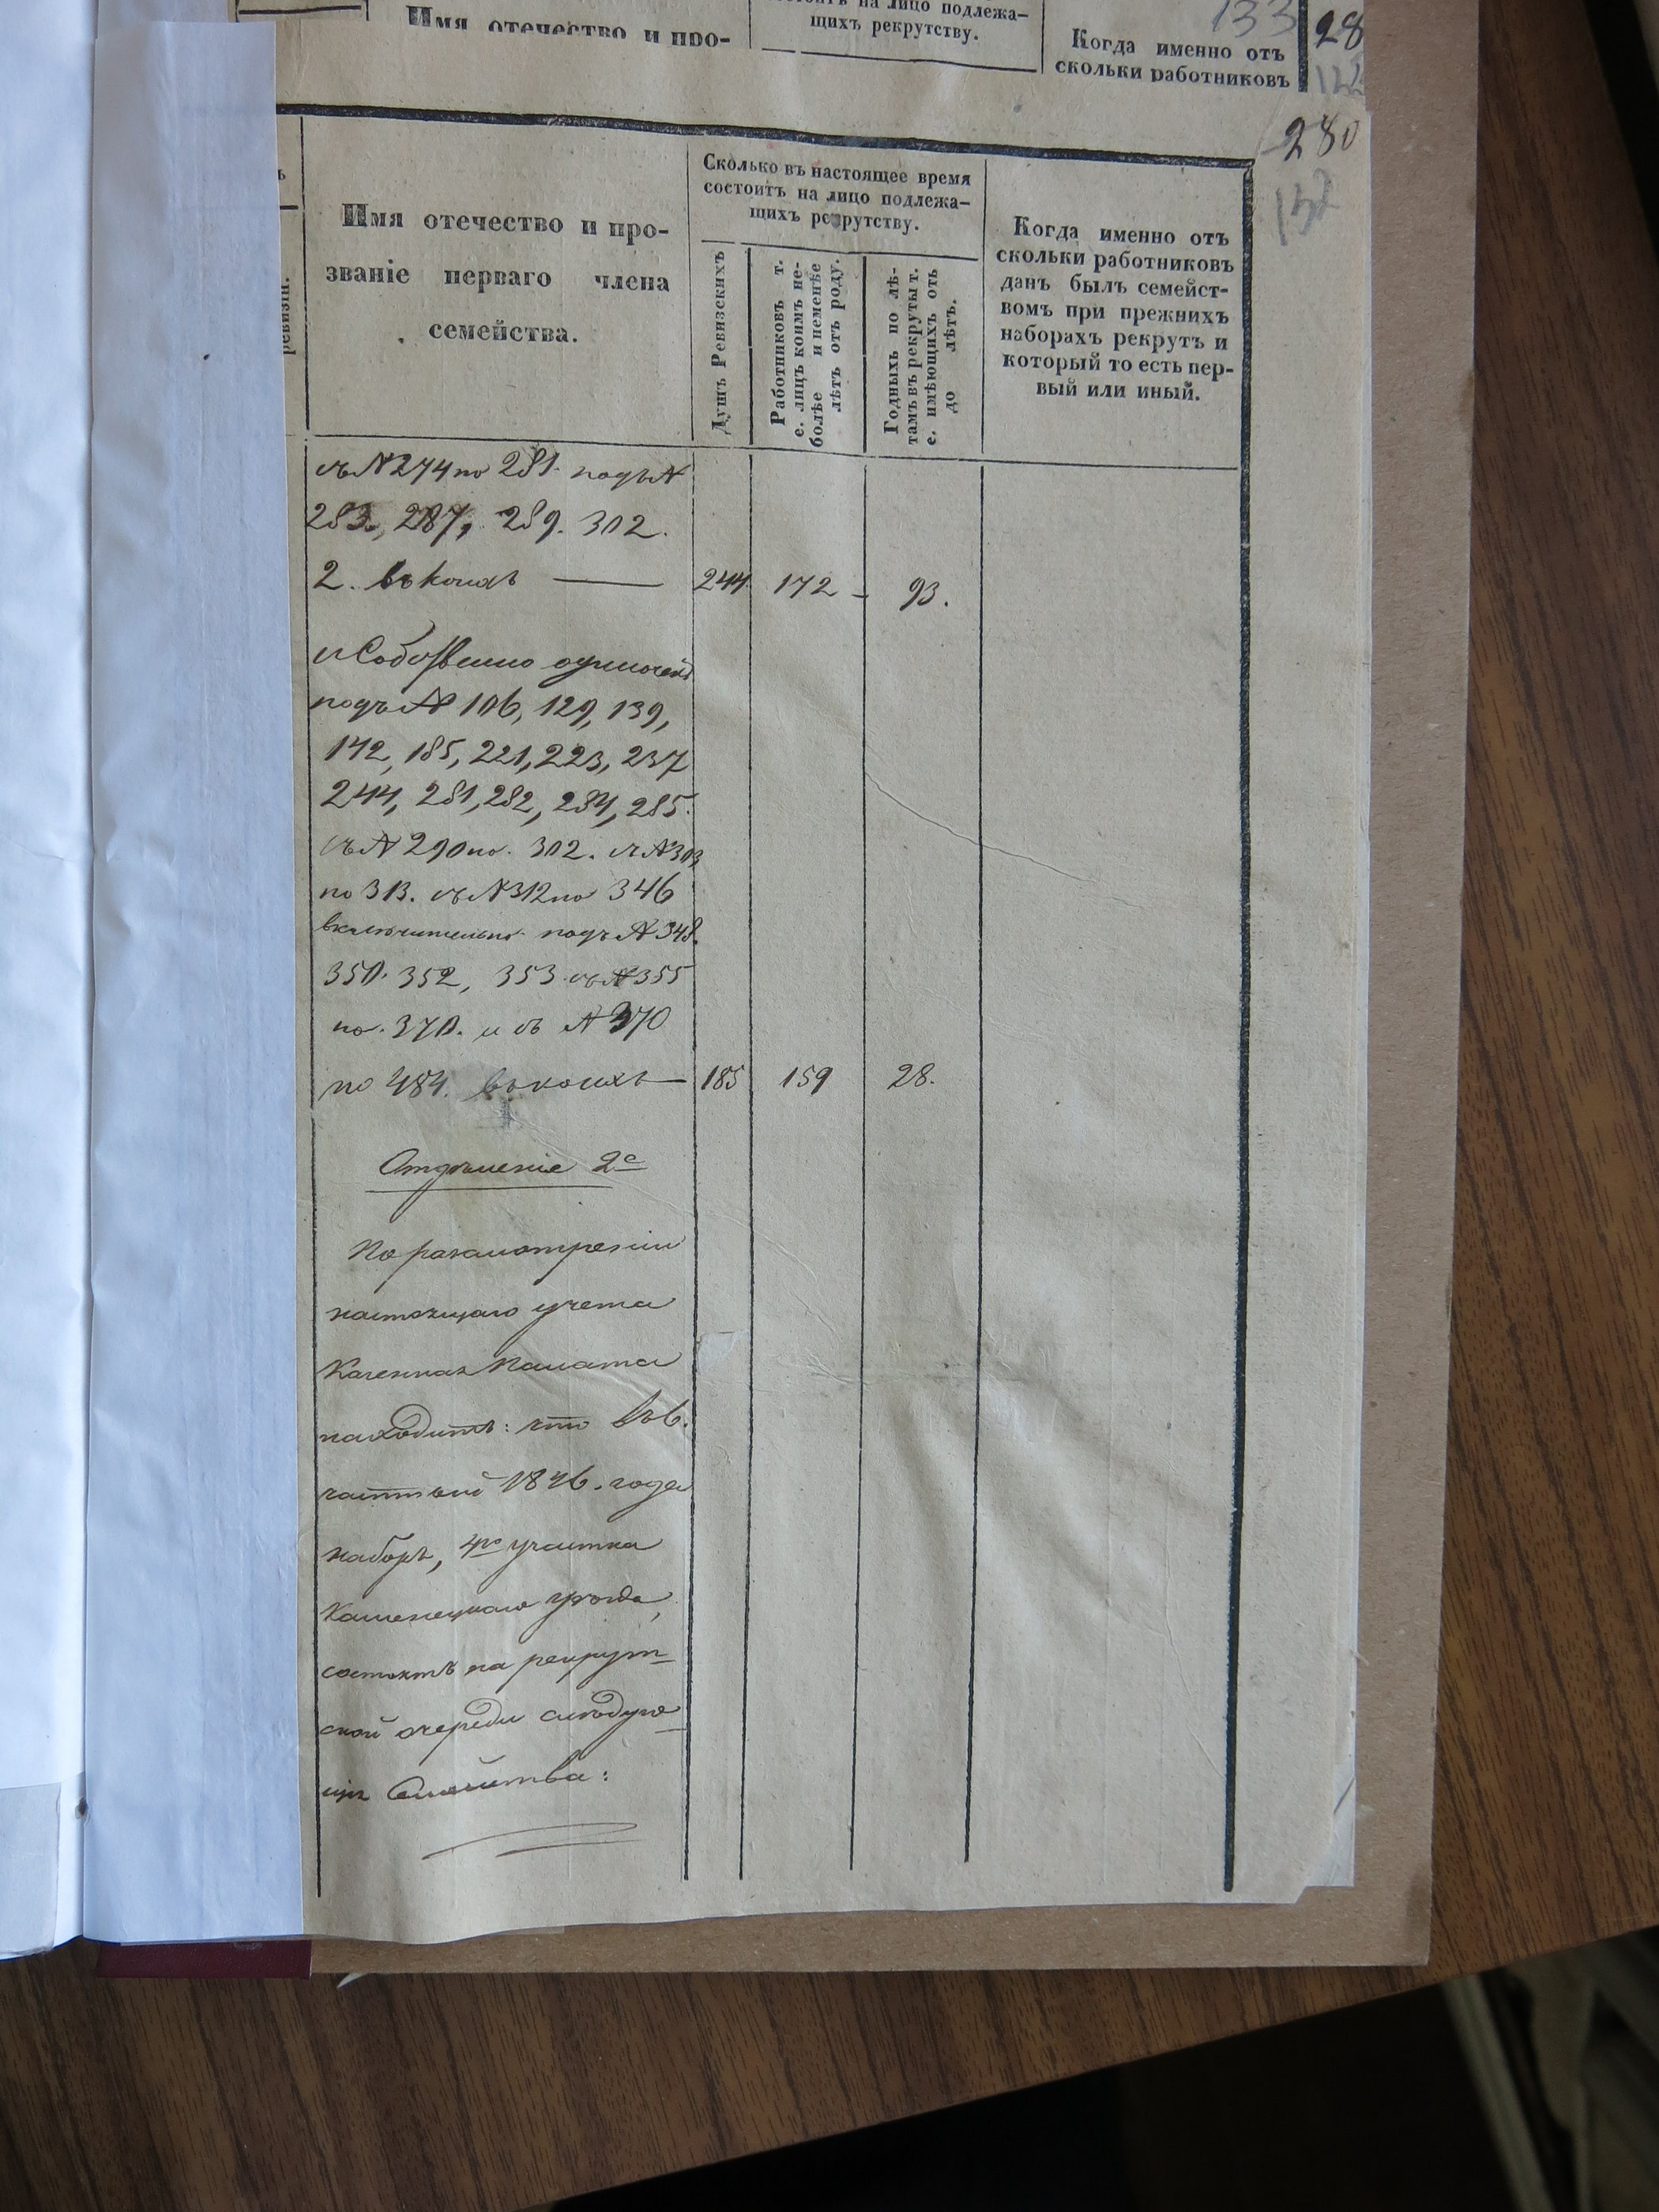 Имя отечество и про-
состоитъ на лицо подлежа-
щихъ рекрутству.
Когда именно отъ
скольки работниковъ
133
28
280
132
ревизіи.
Имя отечество и про-
званіе перваго члена
семейства.
Сколько въ настоящее время
состоитъ на лицо подлежа-
щихъ рекрутству.
Душъ Ревизскихъ
Работниковъ т.
е. лицъ коимъ не-
болѣе и неменѣе
лѣтъ отъ роду.
Годныхъ по лѣ-
тамъ въ рекруты т.
е. имѣющихъ отъ
до лѣтъ.
Когда именно отъ
скольки работниковъ
данъ былъ семейст-
вомъ при прежнихъ
наборахъ рекрутъ и
который то есть пер-
вый или иный.
съ № 274 по 281. подъ №
283, 287, 289. 302.
2. въ коихъ — 244. 172 - 93.
и Собственно одиночекъ
подъ № 106, 129, 139,
142, 185, 221, 223, 237
244, 281, 282, 284, 285.
съ № 290 по. 302. съ № 303
по 313. съ № 312 по 346
включительно. подъ № 348.
350. 352, 353. съ № 355
по. 370. и съ № 370
по 484. въ коихъ — 185 159 28.
Отдѣленіе 2е
По разсмотреніи
настоящаго учета
Казенная Палата
находитъ: что въ 6.
частный 1846. года
наборъ, 4го участка
Каменецкаго уѣзда,
состоятъ на рекрут-
ской очереди слѣдую-
щія Семейства: